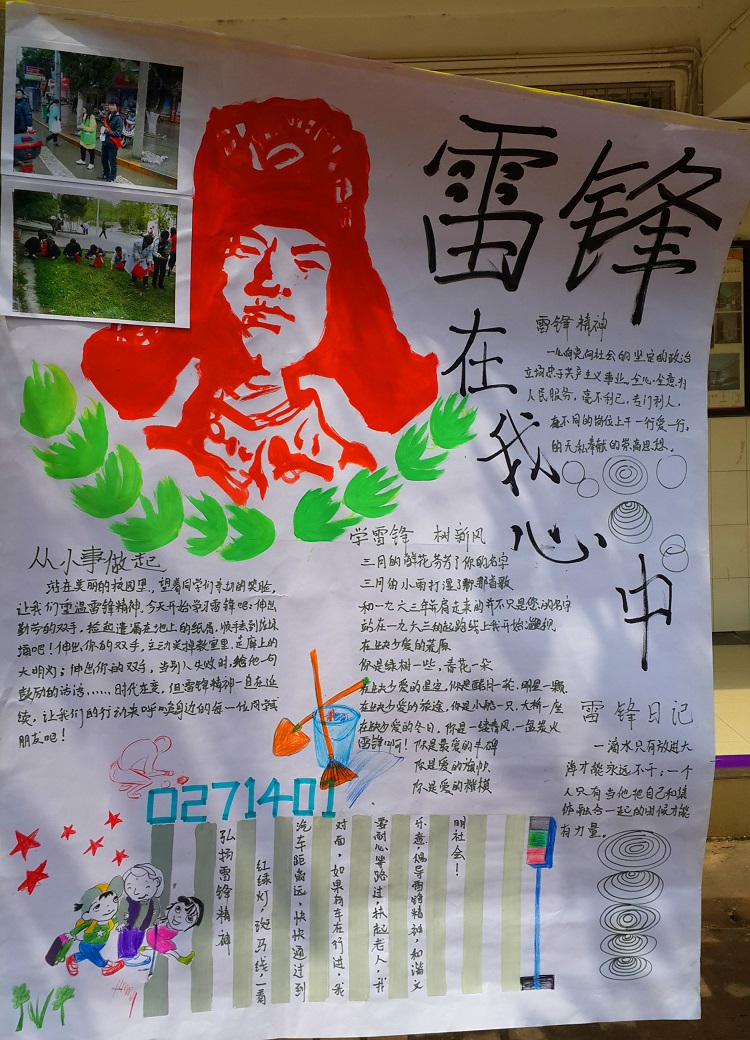 雷锋
在我心中
雷锋精神
一心向党向社会的坚定的政治
立场忠于共产主义事业,全心全意为
人民服务,毫不利己,专门利人,
在不同的岗位上干一行爱一行,
的无私奉献的崇高思想。
从小事做起
站在美丽的校园里,望着同学们亲切的笑脸,
让我们重温雷锋精神,今天开始学习雷锋吧!伸出
勤劳的双手,捡起遗漏在地上的纸屑,顺手丢到垃圾
桶吧!伸出你的双手,主动关掉教室里、走廊上的
大明灯;伸出你的双手,当别人失败时,给他一句
鼓励的话语……时代在变,但雷锋精神一直在延
续,让我们的行动来呼唤身边的每一位同学
朋友吧!
学雷锋 树新风
三月的鲜花芬芳了你的名字
三月的小雨打湿了那首歌
和一九六三年肩走来的并不只是您的名字
站在一九六三的起跑线上我开始
在缺少爱的荒原
你是绿树一些,香花一朵
在缺少爱的星空,你是皓月一轮,明星一颗
在缺少爱的旅途,你是小船一只,大桥一座
在缺少爱的冬日,你是一缕春风,一盆炭火
雷锋啊!你是最爱的丰碑
你是爱的旗帜
你是爱的楷模
雷锋日记
一滴水只有放进大
海才能永远不干,一个
人只有当他把自己和集
体融合一起的时候才能
有力量。
0271401
明社会!
乐意。倡导雷锋精神,和谐文
需耐心等路过,扶起老人,我
对面,如果有车在行进,我
汽车距离远,快快通过到
红绿灯,斑马线,一看
弘扬雷锋精神